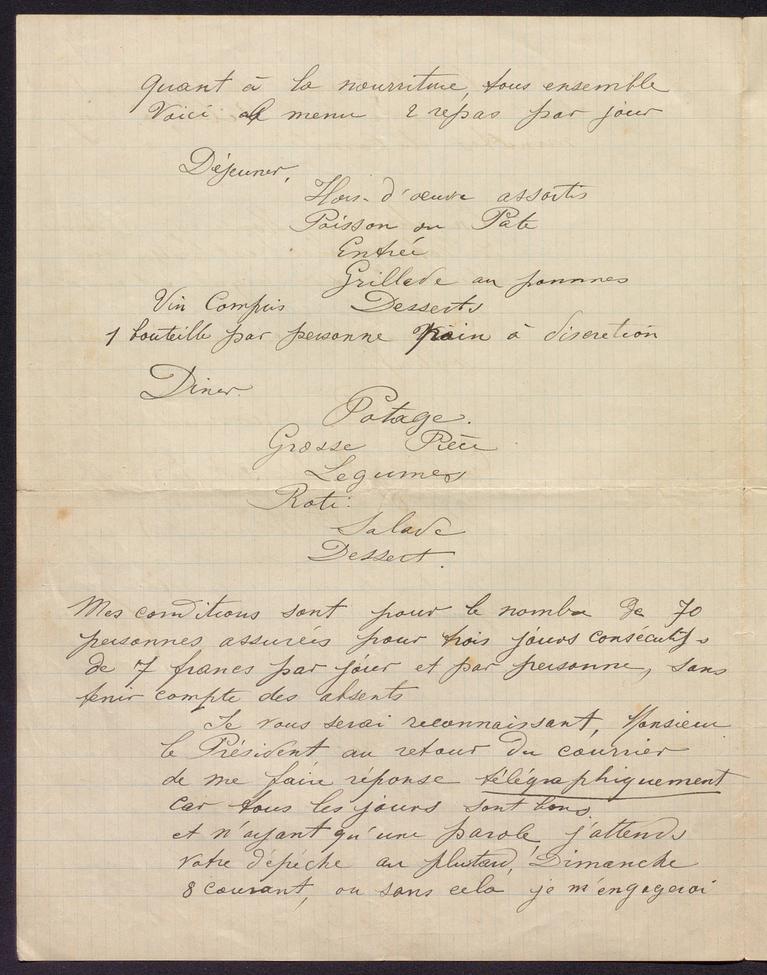 quant à la nourriture, tous ensemble
Voici le menu 2 repas par jour
Déjeuner,
Hors-d'œuvre assortis
Poisson ou Pate
Entrée
Grillade au pommes
Vin Compris Desserts
1 bouteille par personne pain à discretion
Diner.
Potage.
Grosse Pièce
Legumes
Roti.
Salade
Dessert.
Mes conditions sont pour le nombre de 70
personnes assurées pour trois jours consécutifs
de 7 francs par jour et par personne, sans
tenir compte des absents
Je vous serai reconnaissant, Monsieur
le Président au retour du courrier
de me faire réponse télégraphiquement
car tous les jours sont bons
et n'ayant qu'une parole j'attends
votre dépéche au plustard, Dimanche
8 courant, ou sans cela je m'engagerai